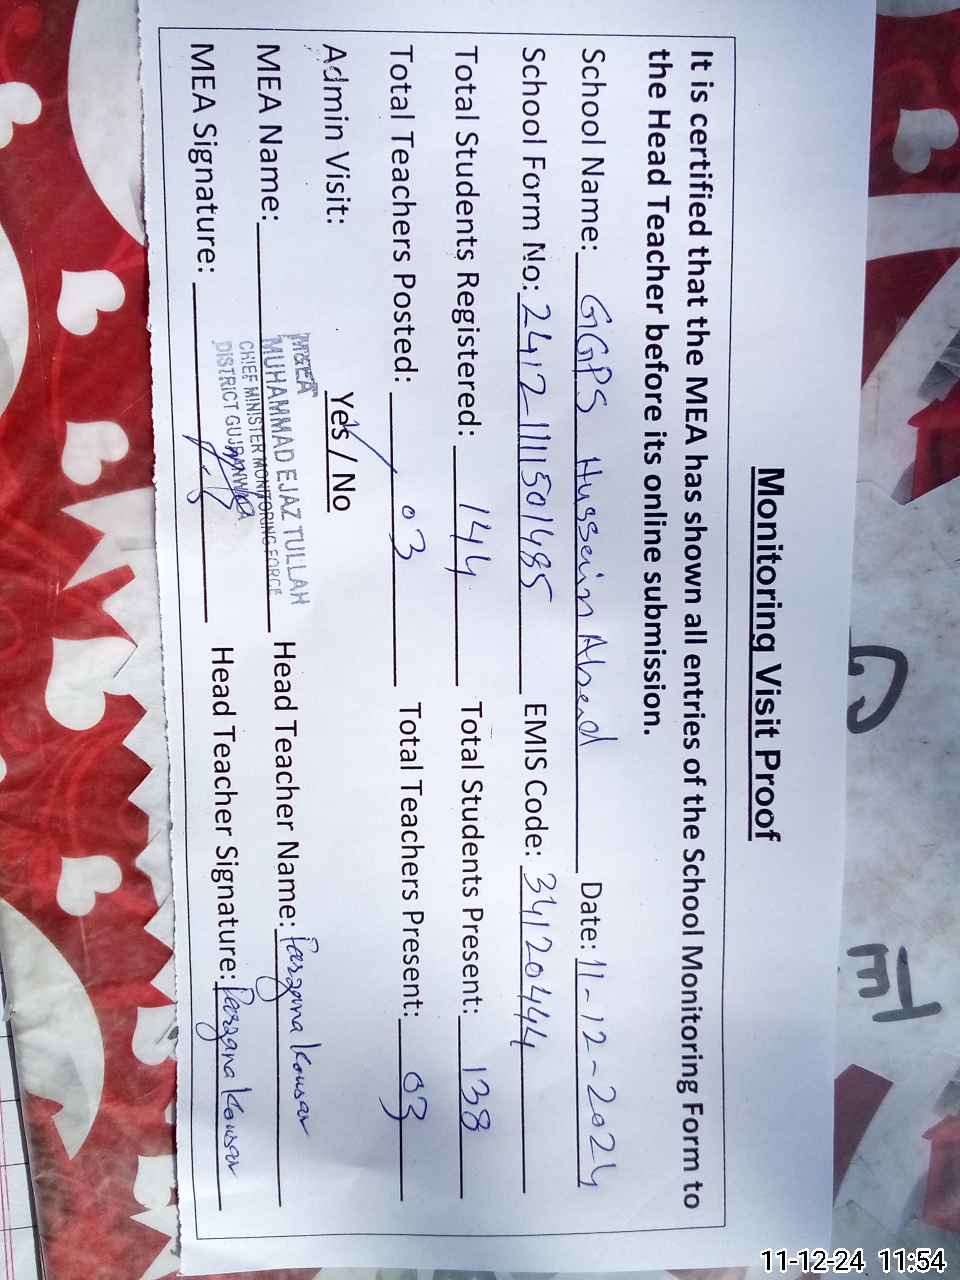 Monitoring Visit Proof
It is certified that the MEA has shown all entries of the School Monitoring Form to
the Head Teacher before its online submission.
School Name: GGPS Hussein Abad Date: 11-12-2024
School Form No: 2412111501485 EMIS Code: 34120444
Total Students Registered: 144 Total Students Present: 138
Total Teachers Posted: 03 Total Teachers Present: 03
Admin Visit: Yes / No
M&EA
MUHAMMAD EJAZ TULLAH
CHIEF MINISTER MONITORING FORCE
DISTRICT GUJRANWALA
MEA Name: Head Teacher Name: Farzana Kousar
MEA Signature: Head Teacher Signature: Farzana Kousar
11-12-24 11:54